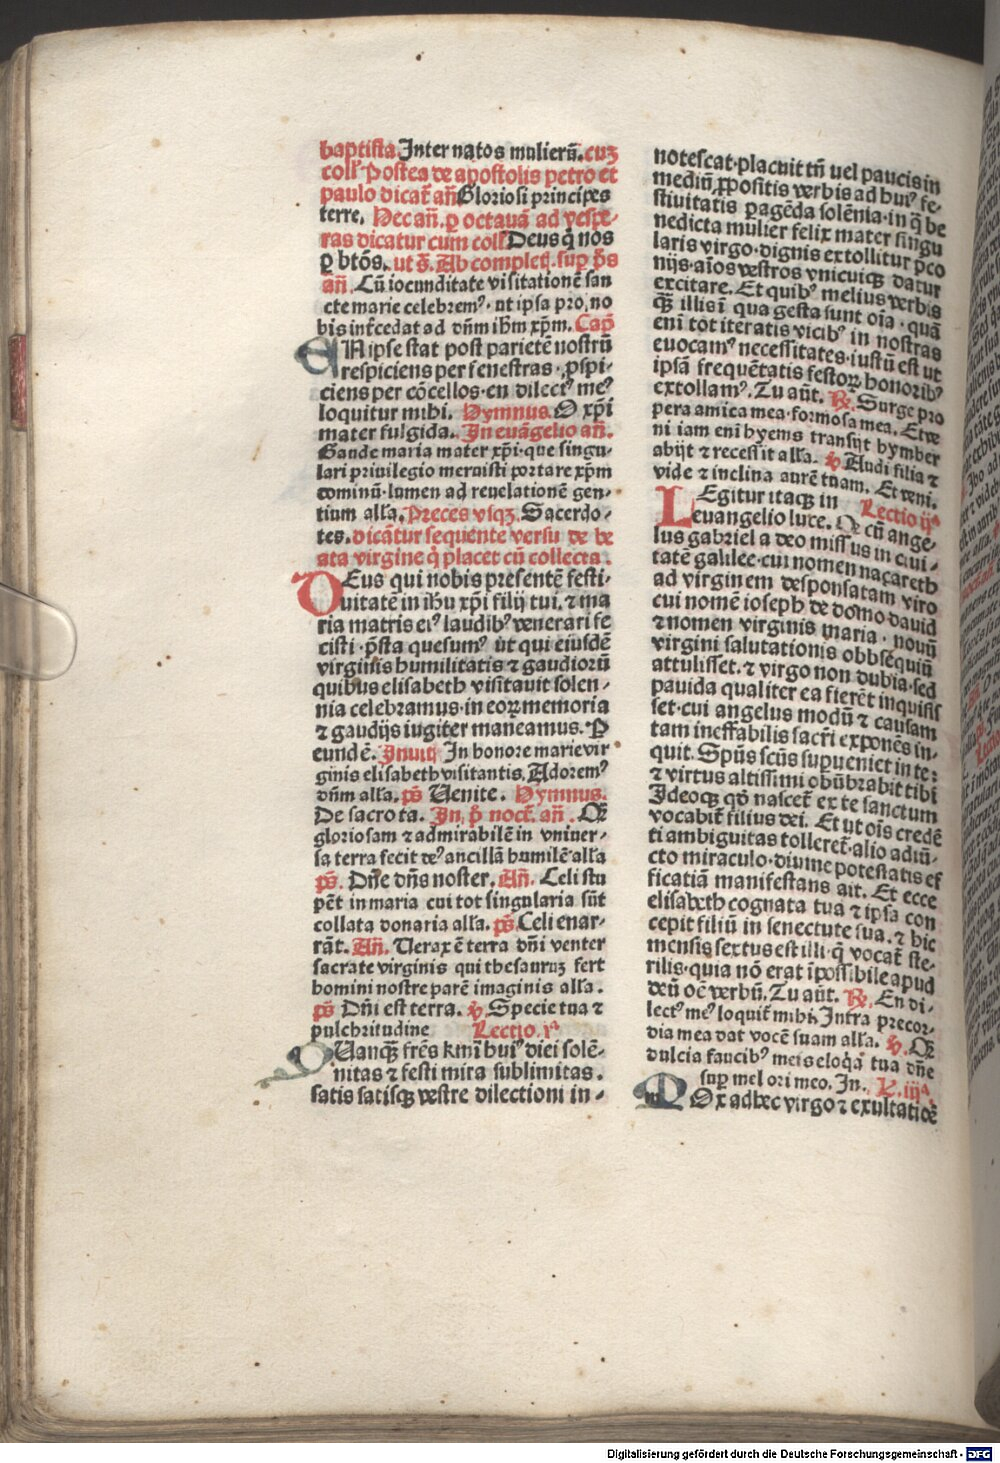 baptista Inter natos mulierũ. cuʒ
coll̃ Postea de apostolis petro et
paulo dicat̃ añ Gloriosi principes
terre. Hec añ. ꝑ octauã ad vespe⸗
ras dicatur cum coll̃ Deus q̃ nos
ꝑ btõs. ut s̃. Ab completi. sup p̃s
añ. Cũ iocunditate visitationẽ san
cte marie celebremꝰ. ut ipsa pro no
bis intͤcedat ad dñm ihm̃ xp̃m. Capͫ
EN ipse stat post parietẽ nostrũ
respiciens per fenestras. ꝓspi⸗
ciens per cõcellos. en dilectꝰ meꝰ
loquitur mihi. Hymnus. O xp̃i
mater fulgida. In euãgelio añ.
Gaude maria mater xp̃i. que singu⸗
lari priuilegio meruisti portare xp̃m
dominũ. lumen ad reuelationẽ gen⸗
tium all'a. Preces vsqʒ. Sacerdo⸗
tes. dicãtur sequente versu de be
ata virgine q̃ placet cũ collecta.
DEus qui nobis presentẽ festi⸗
uitatẽ in ihu xp̃i filij tui. ⁊ ma
ria matris eiꝰ laudibꝰ venerari fe
cisti. p̃sta quesumꝰ ut qui eiusdẽ
virginis humilitatis ⁊ gaudiorũ
quibus elisabeth visitauit solen⸗
nia celebramus. in eoꝝ memoria
⁊ gaudijs iugiter maneamus. P
eundẽ. Inuit̃ In honore marie vir
ginis elisabeth visitantis. Adoremꝰ
dñm all'a. p̃s Uenite. Hymnus.
De sacro ta. In p̃ noct̃. añ. Qꝛ
gloriosam ⁊ admirabilẽ in vniuer⸗
sa terra fecit deꝰ ancillã humilẽ all'a
p̃s. Dñe dñs noster. Añ. Celi stu
pẽt in maria cui tot singularia sũt
collata donaria all'a. p̃s Celi enar⸗
rãt. Añ. Uerax ẽ terra dñi venter
sacrate virginis qui thesauruʒ fert
homini nostre parẽ imaginis all'a.
p̃s Dñi est terra. ℣. Specie tua ⁊
pulchritudine Lectio. iª
QUanqʒ̃ frẽs kmĩ huiꝰ diei solẽ⸗
nitas ⁊ festi mira sublimitas.
satis satisqʒ vestre dilectioni in⸗
notescat. placuit tñ uel paucis in
mediũ ꝓpositis verbis ad huiꝰ fe⸗
stiuitatis ꝑagẽda solẽnia. in q̃ be
nedicta mulier felix mater singu
laris virgo. dignis extollitur p̃co
nijs. aĩos vestros vnicuiqʒ datur
excitare. Et quibꝰ melius verbis
qʒ̃ illis ĩ qua gesta sunt oĩa. quã
enĩ tot iteratis vicibꝰ in nostras
euocamꝰ necessitates. iustũ est ut
ipsã frequẽtatis festoꝝ honoribꝰ
extollamꝰ. Tu aũt. ℟. Surge pro
pera amica mea. formosa mea. Et ve
ni iam enĩ hyems transijt hymber
abijt ⁊ recessit all'a. ℣ Audi filia ⁊
vide ⁊ inclina aurẽ tuam. Et veni.
LEgitur itaqʒ in Lectio ijª
euangelio luce. Qꝛ cũ ange⸗
lus gabriel a deo missus in ciui⸗
tatẽ galilee. cui nomen naçareth
ad virginem desponsatam viro
cui nomẽ ioseph de domo dauid
⁊ nomen virginis maria. nouũ
virgini salutationis obbsequiũ
attulisset. ⁊ virgo non dubia. sed
pauida qualiter ea fierẽt inquisis
set. cui angelus modũ ⁊ causam
tam ineffabilis sacri exponẽs in⸗
quit. Spũs scũs supueniet in te:
⁊ virtus altissimi obũbrabit tibi
Ideoqʒ qd̃ nascet̃ ex te sanctum
vocabit̃ filius dei. Et ut oĩs credẽ
ti ambiguitas tolleret̃. alio adiũ⸗
cto miraculo. diuine potestatis ef
ficatiã manifestans ait. Et ecce
elisabeth cognata tua ⁊ ipsa con
cepit filiũ in senectute sua. ⁊ hic
mensis sextus est illi. q̃ vocat̃ ste⸗
rilis. quia nõ erat ĩpossibile apud
deũ oẽ verbũ. Tu aũt. ℟. En di⸗
lectꝰ meꝰ loquit̃ mihi. Intra precor⸗
dia mea dat vocẽ suam all'a. ℣. Qꝛ
dulcia faucibꝰ meis eloq̃a tua dñe
sup mel ori meo. In. L. iijª.
MOx adhec virgo ⁊ exultatiõe
Digitalisierung gefördert durch die Deutsche Forschungsgemeinschaft - DFG